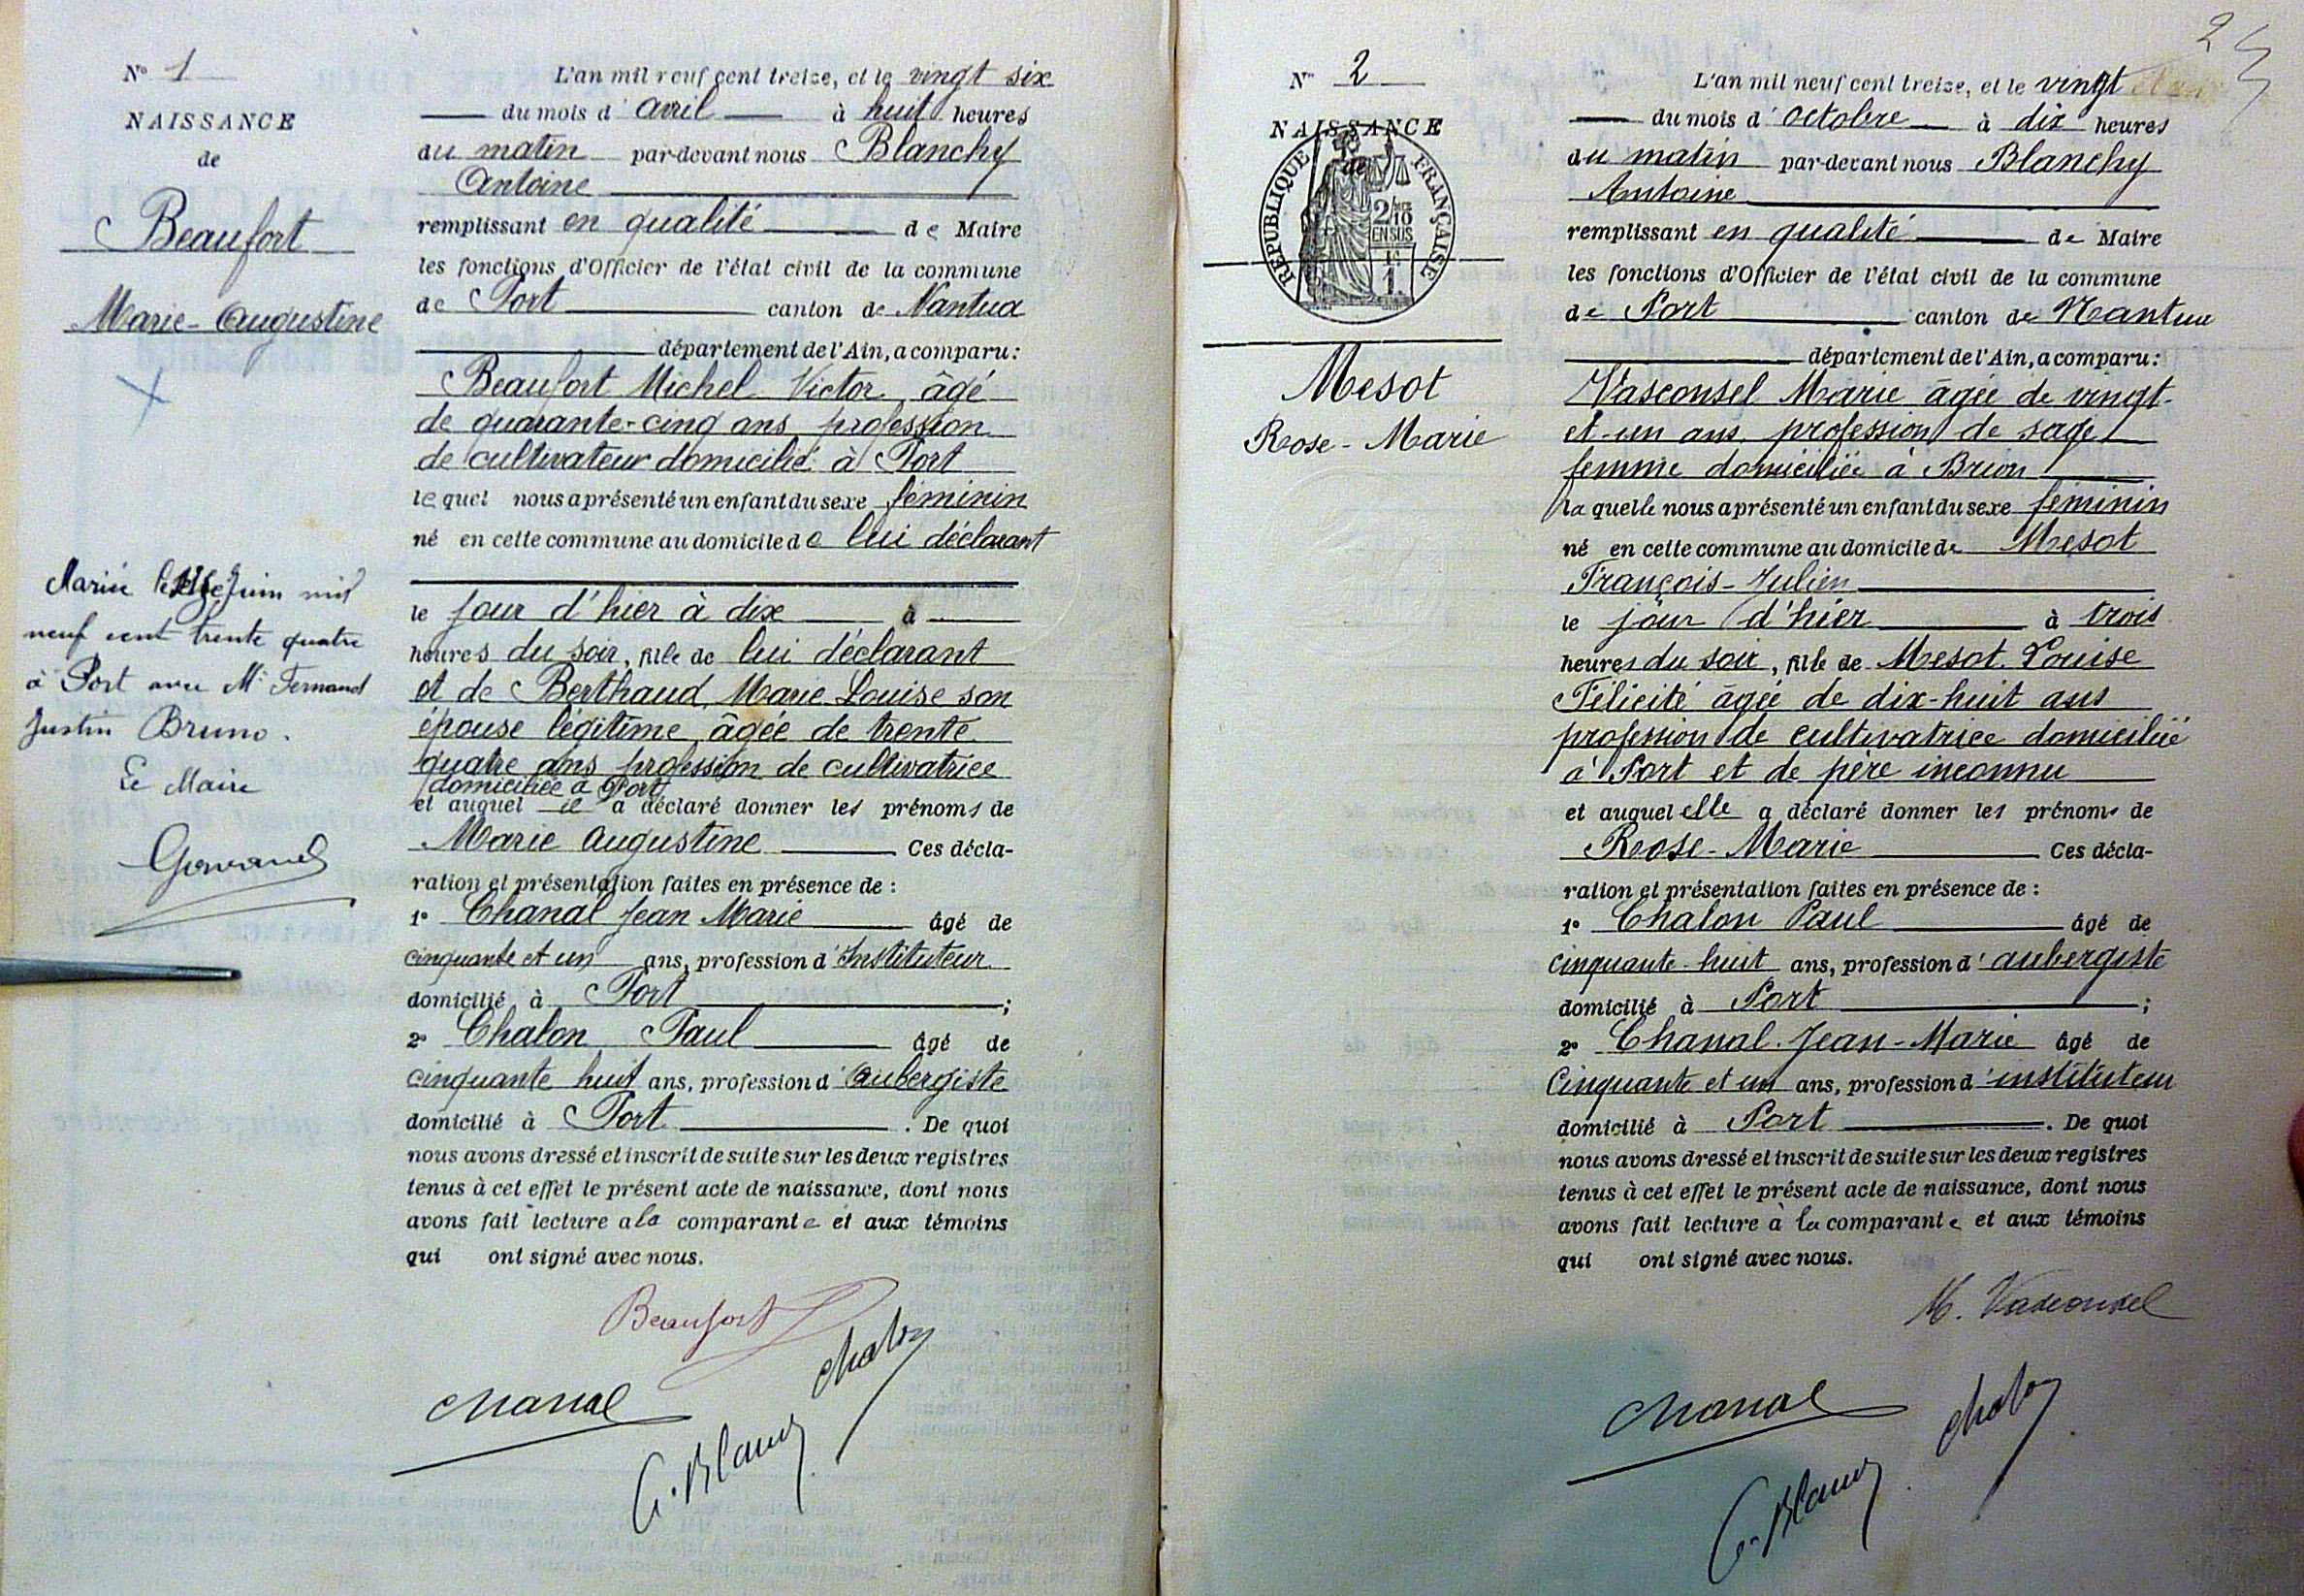 N° 1
NAISSANCE
de
Beaufort
Marie-Augustine
Mariée le Juin mil
neuf cent trente quatre
à Port avec Mr Fernand
Justin Bruno.
Le Maire
L'an mil neuf cent treize, et le vingt six
du mois d'avril à huit heures
du matin par-devant nous Blanchy
Antoine
remplissant en qualité de Maire
les fonctions d'Officier de l'état civil de la commune
de Port canton de Nantua
département de l'Ain, a comparu :
Beaufort Michel Victor âgé
de quarante-cinq ans profession
de cultivateur domicilié à Port
lequel nous a présenté un enfant du sexe féminin
né en cette commune au domicile de lui déclarant
le jour d'hier à dix à
heures du soir, fille de lui déclarant
et de Berthaud, Marie Louise son
épouse légitime, âgée de trente
quatre ans profession de cultivatrice
domiciliée à Port
et auquel il a déclaré donner les prénoms de
Marie Augustine Ces décla-
ration et présentation faites en présence de :
1° Chanal Jean Marie âgé de
cinquante et un ans, profession d'Instituteur
domicilié à Port ;
2° Chalon Paul âgé de
cinquante huit ans, profession d'Aubergiste
domicilié à Port . De quoi
nous avons dressé et inscrit de suite sur les deux registres
tenus à cet effet le présent acte de naissance, dont nous
avons fait lecture à la comparante et aux témoins
qui ont signé avec nous.
Beaufort
Chalon
Chanal
A. Blanchy
2
N° 2
NAISSANCE
de
RÉPUBLIQUE FRANÇAISE
2/10
EN SUS
Mesot
Rose-Marie
L'an mil neuf cent treize, et le vingt
du mois d'octobre à dix heures
du matin par-devant nous Blanchy
Antoine
remplissant en qualité de Maire
les fonctions d'Officier de l'état civil de la commune
de Port canton de Nantua
département de l'Ain, a comparu :
Vasconsel Marie âgée de vingt-
et-un ans, profession de sage
femme domiciliée à Brion
laquelle nous a présenté un enfant du sexe féminin
né en cette commune au domicile de Mesot
François-Julien
le jour d'hier à trois
heures du soir, fille de Mesot Louise
Félicité âgée de dix-huit ans
profession de cultivatrice domiciliée
à Port et de père inconnu
et auquel elle a déclaré donner les prénoms de
Rose-Marie Ces décla-
ration et présentation faites en présence de :
1° Chalon Paul âgé de
cinquante-huit ans, profession d'aubergiste
domicilié à Port ;
2° Chanal Jean-Marie âgé de
Cinquante et un ans, profession d'instituteur
domicilié à Port . De quoi
nous avons dressé et inscrit de suite sur les deux registres
tenus à cet effet le présent acte de naissance, dont nous
avons fait lecture à la comparante et aux témoins
qui ont signé avec nous.
M. Vasconsel
Chanal
Chalon
A. Blanchy